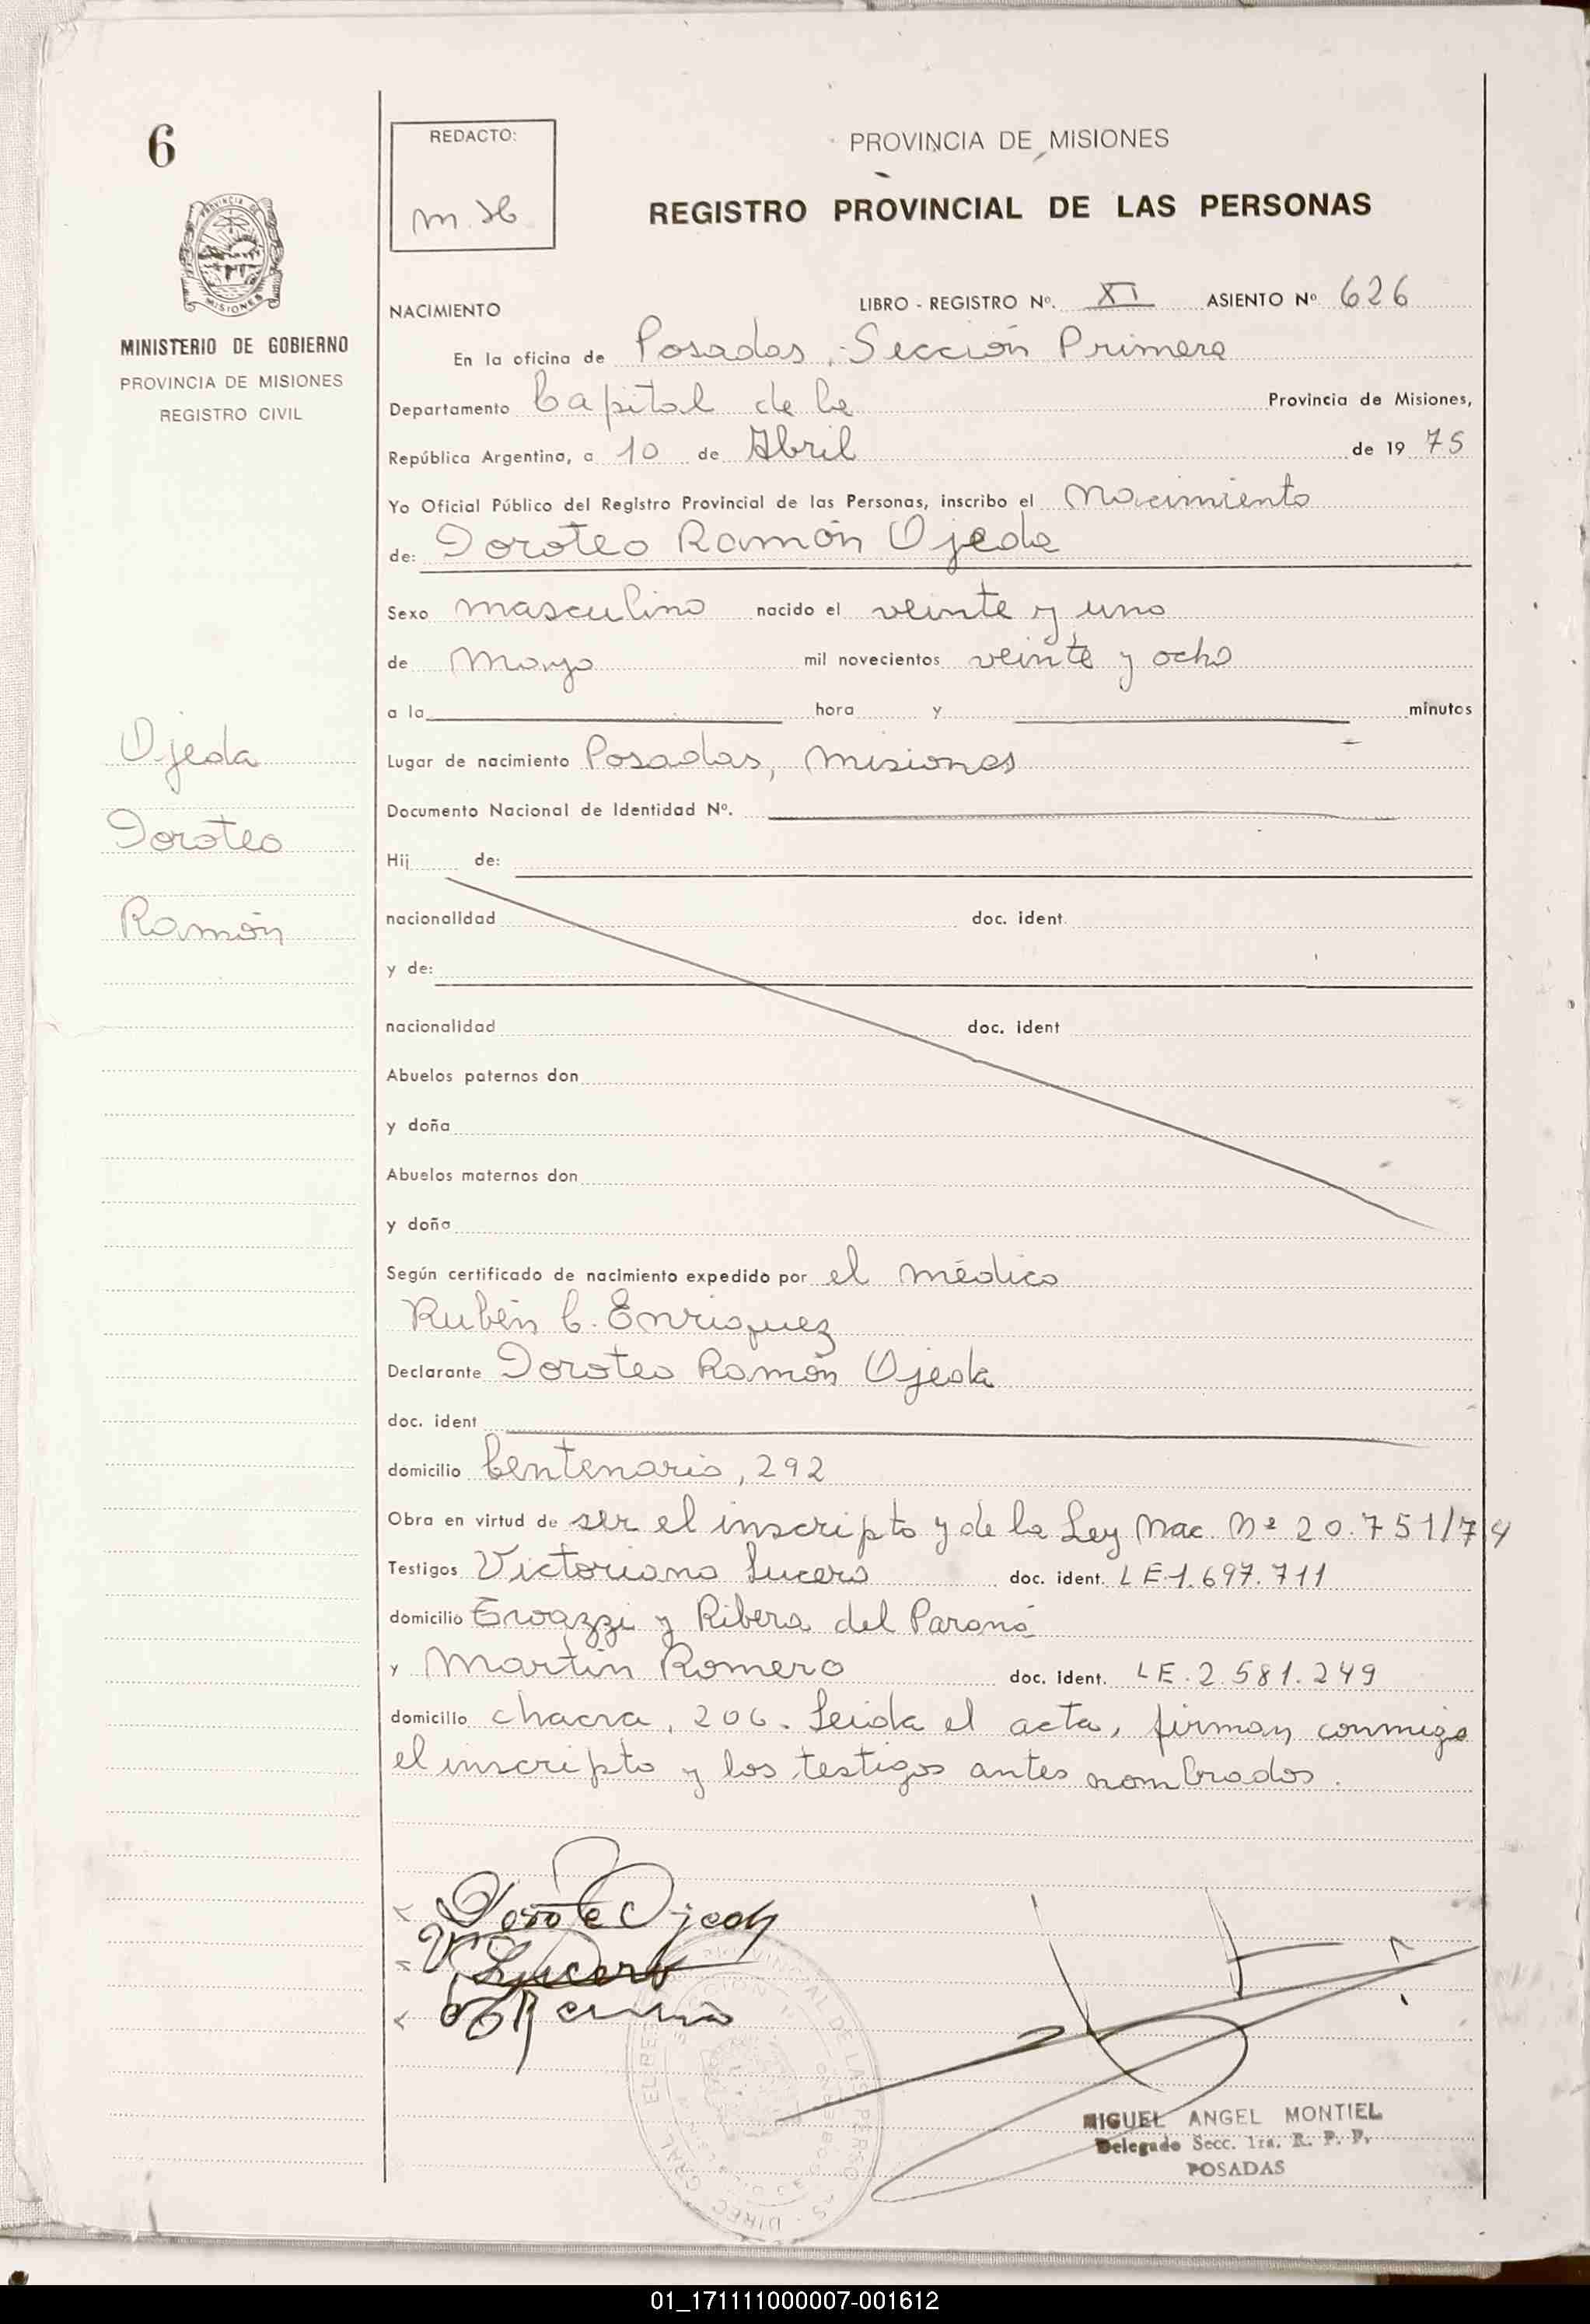 6
REDACTO:
PROVINCIA DE MISIONES
REGISTRO PROVINCIAL DE LAS PERSONAS
MINISTERIO DE GOBIERNO
PROVINCIA DE MISIONES
REGISTRO CIVIL
NACIMIENTO LIBRO - REGISTRO Nº. XI ASIENTO Nº 626
En la oficina de Posadas, Sección Primera
Departamento Capital de la Provincia de Misiones,
República Argentina, a 10 de Abril de 19 75
Yo Oficial Público del Registro Provincial de las Personas, inscribo el Nacimiento
de: Doroteo Ramón Ojeda
Sexo masculino nacido el veinte y uno
de Mayo mil novecientos veinte y ocho
a la hora y minutos
Ojeda
Doroteo
Ramón
Lugar de nacimiento Posadas, Misiones
Documento Nacional de Identidad Nº.
Hij de:
nacionalidad doc. ident.
y de:
nacionalidad doc. ident
Abuelos paternos don
y doña
Abuelos maternos don
y doña
Según certificado de nacimiento expedido por el médico
Rubén C. Enriquez
Declarante Doroteo Ramón Ojeda
doc. ident
domicilio Centenario, 292
Obra en virtud de ser el inscripto y de la Ley Nac. Nº 20.751/74
Testigos Victoriano Lucero doc. ident. LE-1.697.711
domicilio y Ribera del Paraná
y Martín Romero doc. ident. LE.2.581.249
domicilio chacra, 206. Leida el acta, firman conmigo
el inscripto y los testigos antes nombrados.
Doroteo Ojeda
V. Lucero
MIGUEL ANGEL MONTIEL
Delegado Secc. 1ra. R. P. P.
POSADAS
01_171111000007-001612